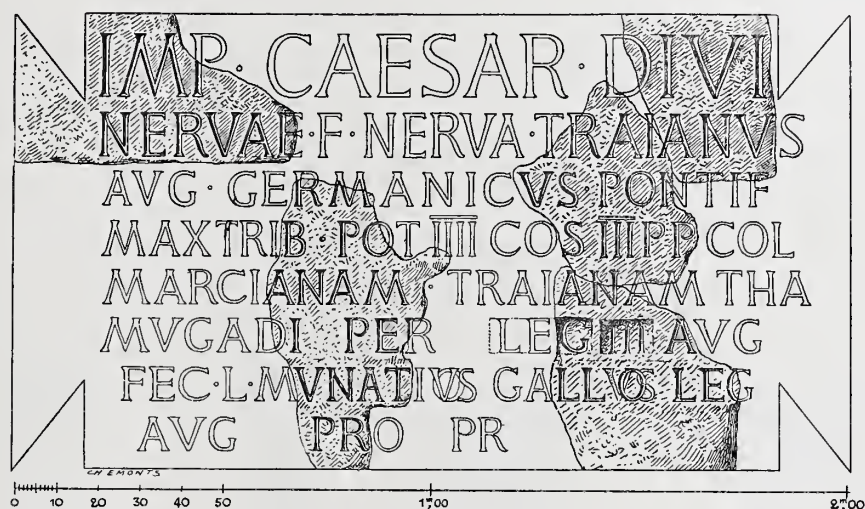 IMP · CAESAR · DIVI
NERVAE · F · NERVA · TRAIANVS
AVG · GERMANICVS · PONTIF
MAX TRIB · POT IIII COS III PP COL
MARCIANAM · TRAIANAM THA
MVGADI PER LEG III AVG
FEC · L · MVNATIVS GALLVS LEG
AVG PRO PR
CH EMONTS
0 10 20 30 40 50 1m00 2m00